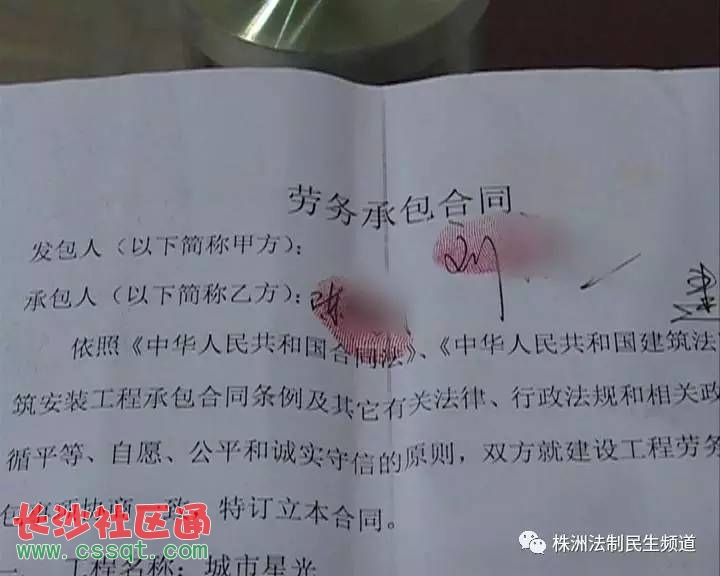 劳务承包合同
发包人（以下简称甲方）： 刘
承包人（以下简称乙方）： 陈
依照《中华人民共和国合同法》、《中华人民共和国建筑法
筑安装工程承包合同条例及其它有关法律、行政法规和相关政
循平等、自愿、公平和诚实守信的原则，双方就建设工程劳务
包事项协商一致，特订立本合同。
一、工程名称：城市星光
长沙社区通
www.cssqt.com
株洲法制民生频道